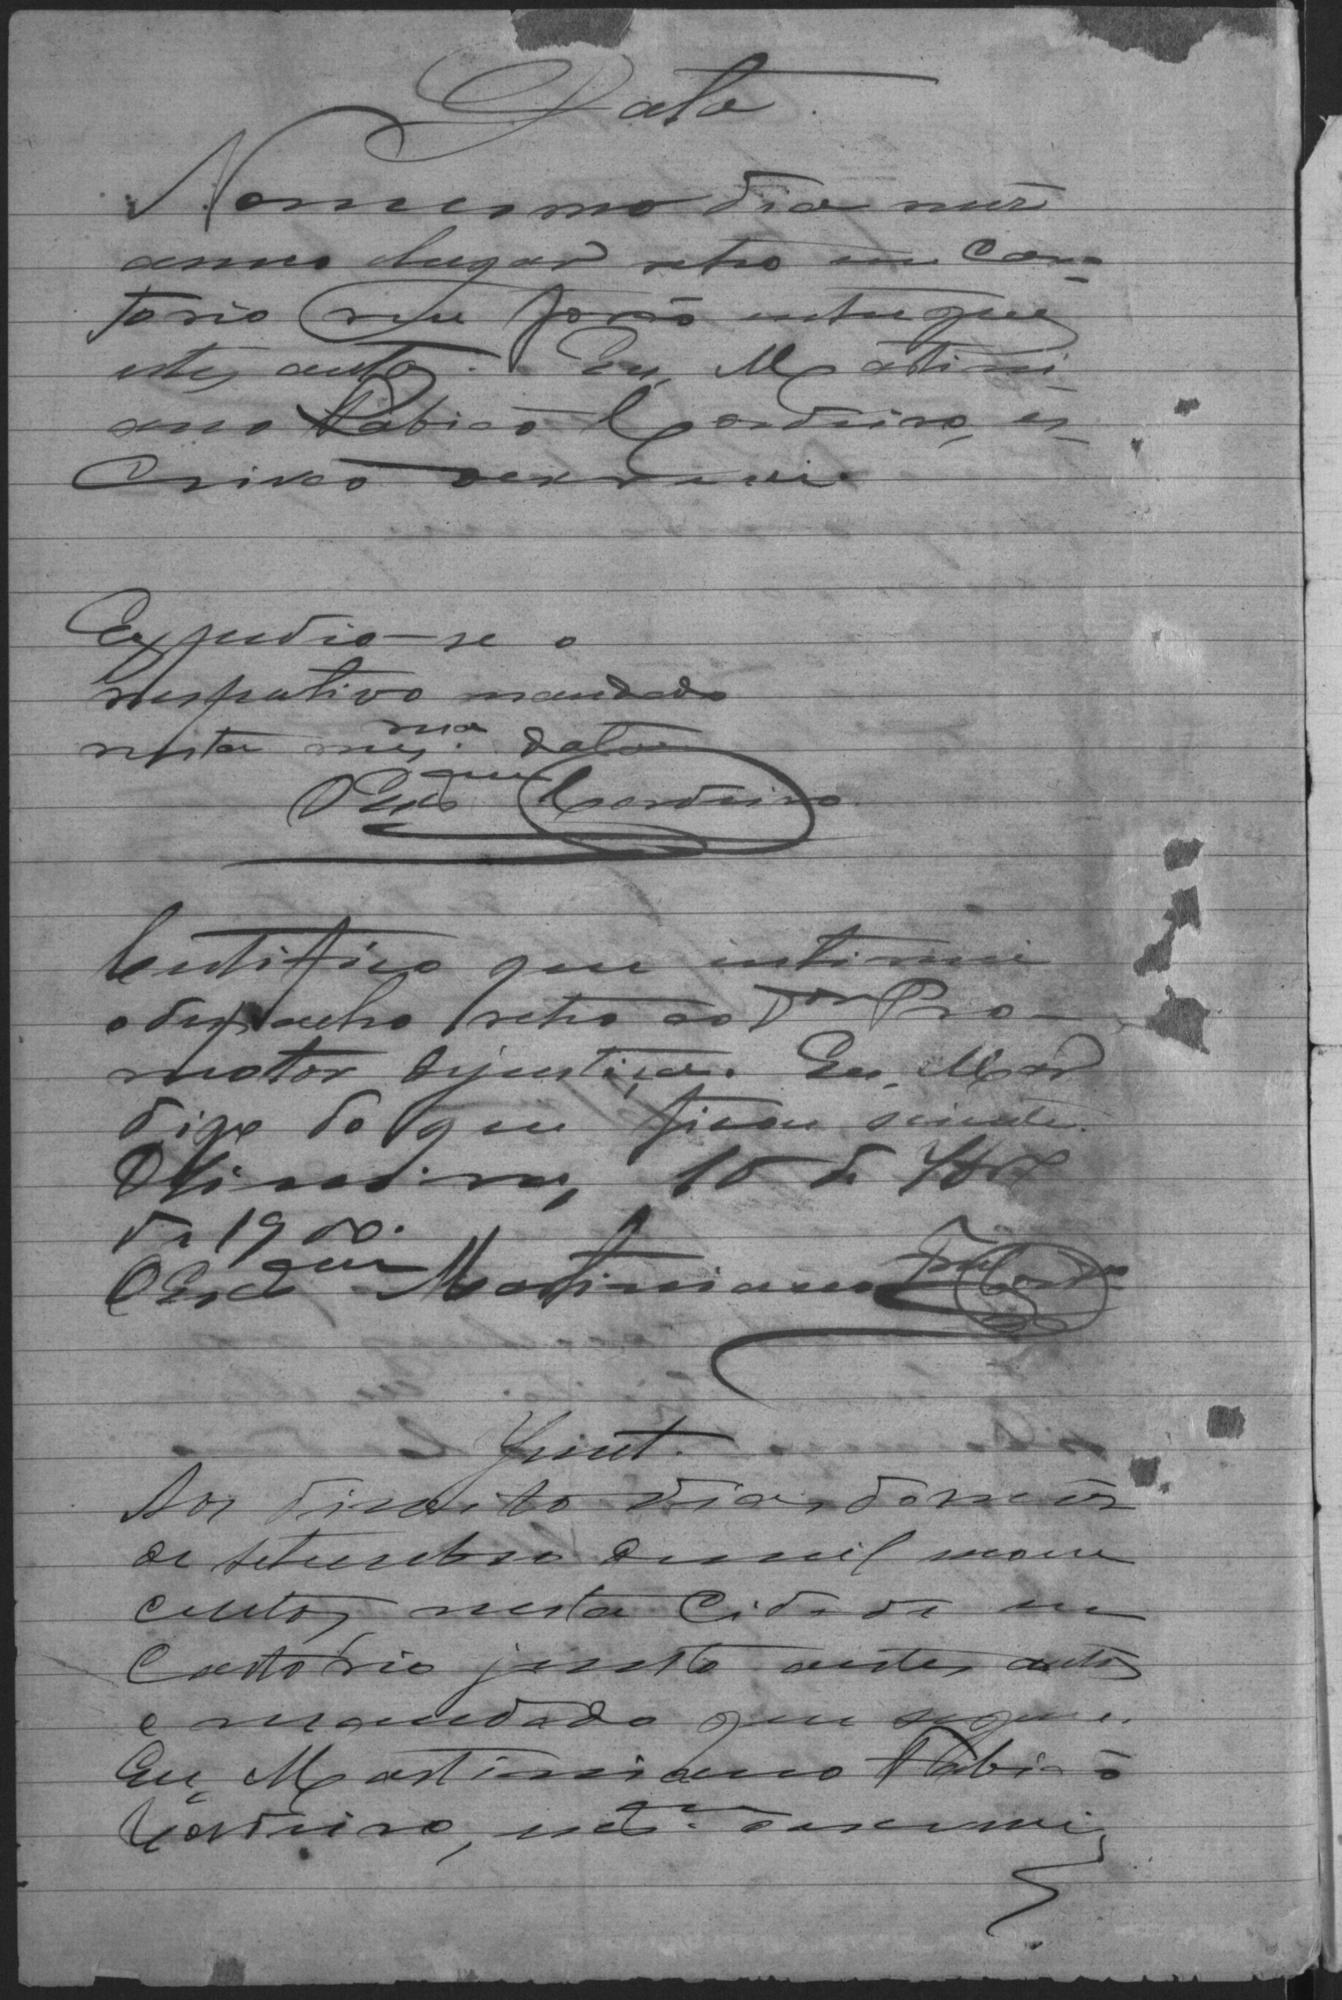 Data.
No mesmo dia mez
anno e lugar retro em Car-
torio me forão entregues
estes autos. Eu, Martini-
ano Fabião Cordeiro, es-
crivão o escrevi.
Expedio-se o
respectivo mandado
nesta mes.ma data
O Escam Cordeiro
Certifico que intimei
o despacho retro ao Dor Pro-
motor de justiça. Eu, Mar
digo do que ficou sciente.
15 de 7bro
de 1900.
O Escam Martiniano Fab. Cordro
Junt.
Aos dezoito dias do mez
de setembro de mil nove
centos, nesta Cidade em
Cartorio junto a estes autos
o mandado que segue.
Eu, Martiniano Fabião
Cordeiro, escam. o escrevi